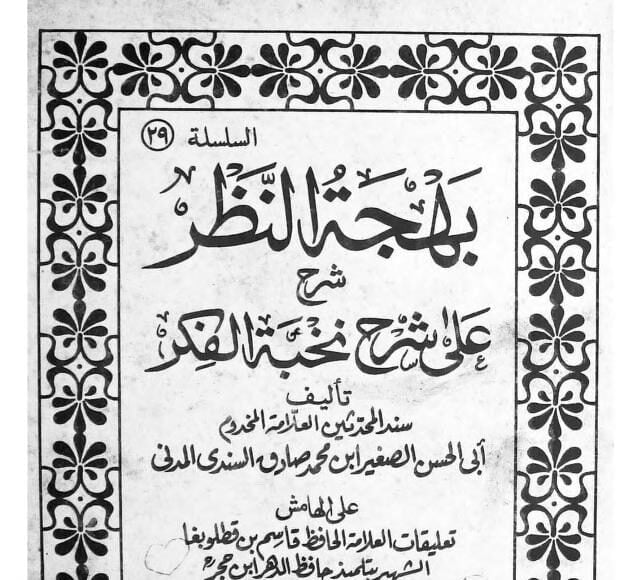 السلسلة ٢٩
بَهْجَةُ النَّظَر
شرح
عَلىٰ شرح نخبة الفِكر
تأليف
سند المحدثين العلّامة المخدوم
أبى الحسن الصغير ابن محمد صادق السندى المدنى
على الهامش
تعليقات العلامة الحافظ قاسم بن قطلوبغا
الشهير بتلميذ حافظ الدهر ابن حجر